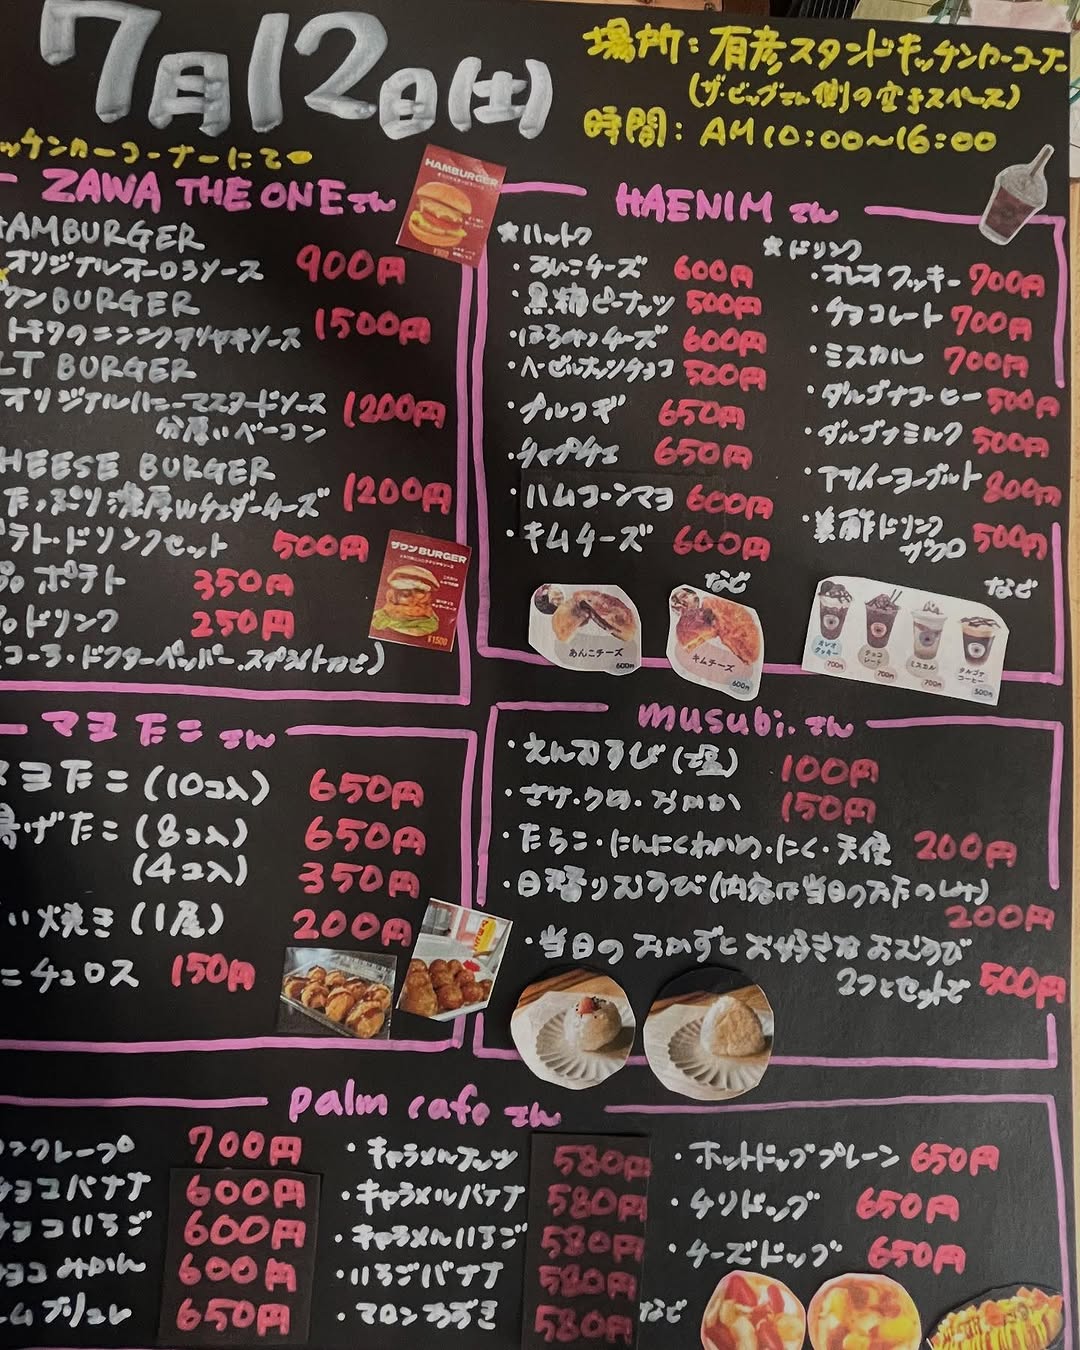 7月12日(土)
場所：有彦スタンドキッチンカーコーナー
(ザ・ビッグさん側の空きスペース)
時間：AM10:00〜16:00
ッチンカーコーナーにて
ZAWA THE ONEさん
HAMBURGER
オリジナルオーロラソース 900円
ザワンBURGER
トキワのニンニクテリヤキソース 1500円
LT BURGER
オリジナルハニーマスタードソース 1200円
分厚いベーコン
CHEESE BURGER
たっぷり濃厚Wチェダーチーズ 1200円
ポテト・ドリンクセット 500円
ポテト 350円
ドリンク 250円
(コーラ・ドクターペッパー・スプライトなど)
HAMBURGER
ザワンBURGER
¥1500
HAENIMさん
★ハットク
・あんこチーズ 600円
・黒糖ピーナッツ 500円
・はちみつチーズ 600円
・ヘーゼルナッツチョコ 500円
・プルコギ 650円
・チャプチェ 650円
・ハムコーンマヨ 600円
・キムチーズ 600円
など
あんこチーズ
600円
キムチーズ
600円
★ドリンク
・オレオクッキー 700円
・チョコレート 700円
・ミスカル 700円
・ダルゴナコーヒー 500円
・ダルゴナミルク 500円
・アサイーヨーグルト 800円
・美酢ドリンク
ザクロ 500円
など
オレオクッキー
700円
チョコレート
700円
ミスカル
700円
ダルゴナコーヒー
500円
マヨたこさん
マヨたこ(10コ入) 650円
揚げたこ(8コ入) 650円
(4コ入) 350円
い焼き(1尾) 200円
ニチュロス 150円
musubi.さん
・えんむすび(塩) 100円
・さけ・うめ・おかか 150円
・たらこ・にんにくわかめ・にく・天使 200円
・日替りむすび(内容は当日のおたのしみ)
200円
・当日のおかずとお好きなおむすび
2つとセットで 500円
palm cafeさん
ンクレープ 700円
チョコバナナ 600円
チョコいちご 600円
チョコみかん 600円
ームブリュレ 650円
・キャラメルナッツ 580円
・キャラメルバナナ 580円
・キャラメルいちご 580円
・いちごバナナ 580円
・マロンあずき 580円
など
・ホットドッグプレーン 650円
・チリドッグ 650円
・チーズドッグ 650円